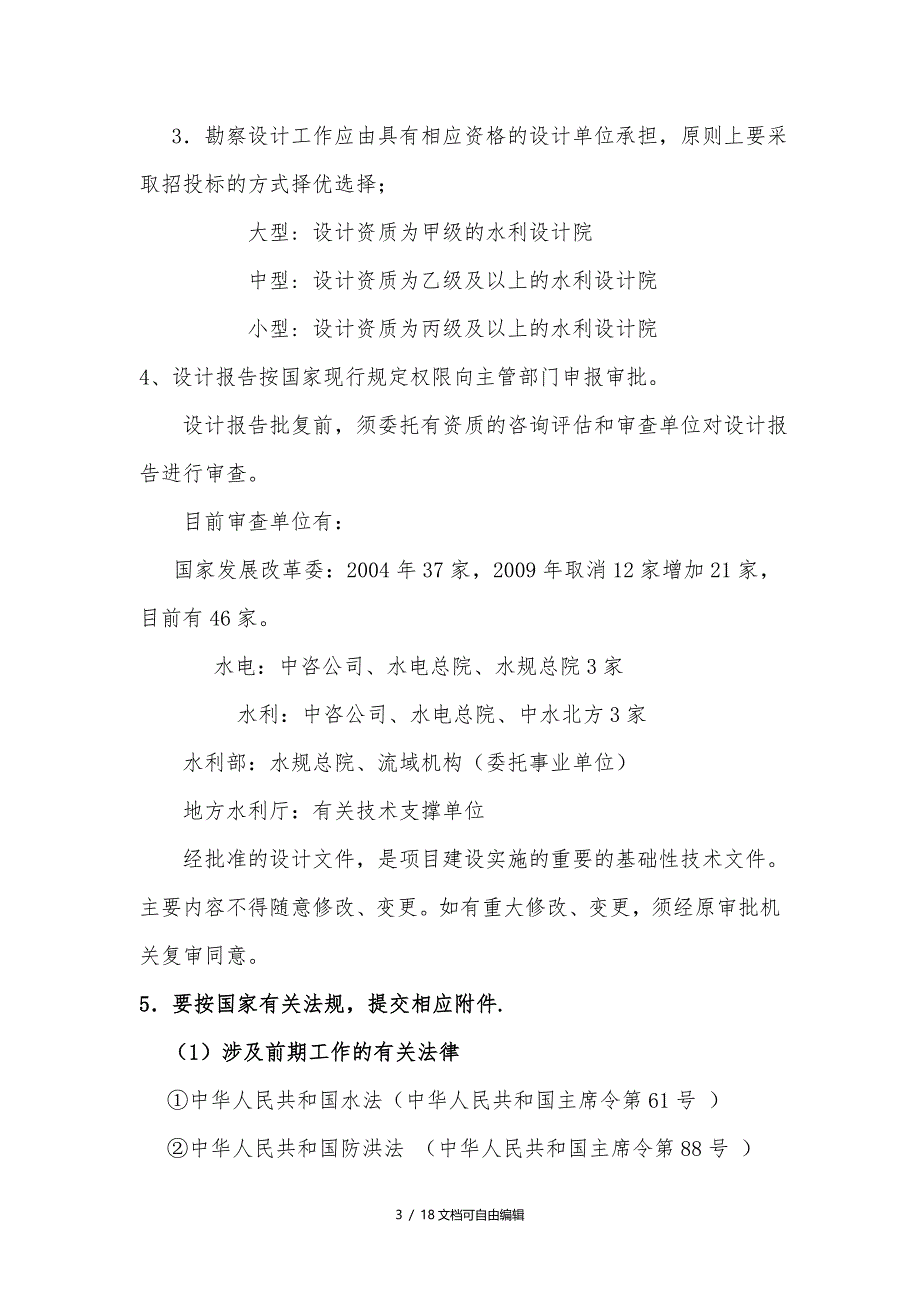 3．勘察设计工作应由具有相应资格的设计单位承担，原则上要采
取招投标的方式择优选择；
大型：设计资质为甲级的水利设计院
中型：设计资质为乙级及以上的水利设计院
小型：设计资质为丙级及以上的水利设计院
4、设计报告按国家现行规定权限向主管部门申报审批。
设计报告批复前，须委托有资质的咨询评估和审查单位对设计报
告进行审查。
目前审查单位有：
国家发展改革委：2004 年 37 家，2009 年取消 12 家增加 21 家，
目前有 46 家。
水电：中咨公司、水电总院、水规总院 3 家
水利：中咨公司、水电总院、中水北方 3 家
水利部：水规总院、流域机构（委托事业单位）
地方水利厅：有关技术支撑单位
经批准的设计文件，是项目建设实施的重要的基础性技术文件。
主要内容不得随意修改、变更。如有重大修改、变更，须经原审批机
关复审同意。
5．要按国家有关法规，提交相应附件.
（1）涉及前期工作的有关法律
①中华人民共和国水法（中华人民共和国主席令第 61 号 ）
②中华人民共和国防洪法 （中华人民共和国主席令第 88 号 ）
3 / 18文档可自由编辑